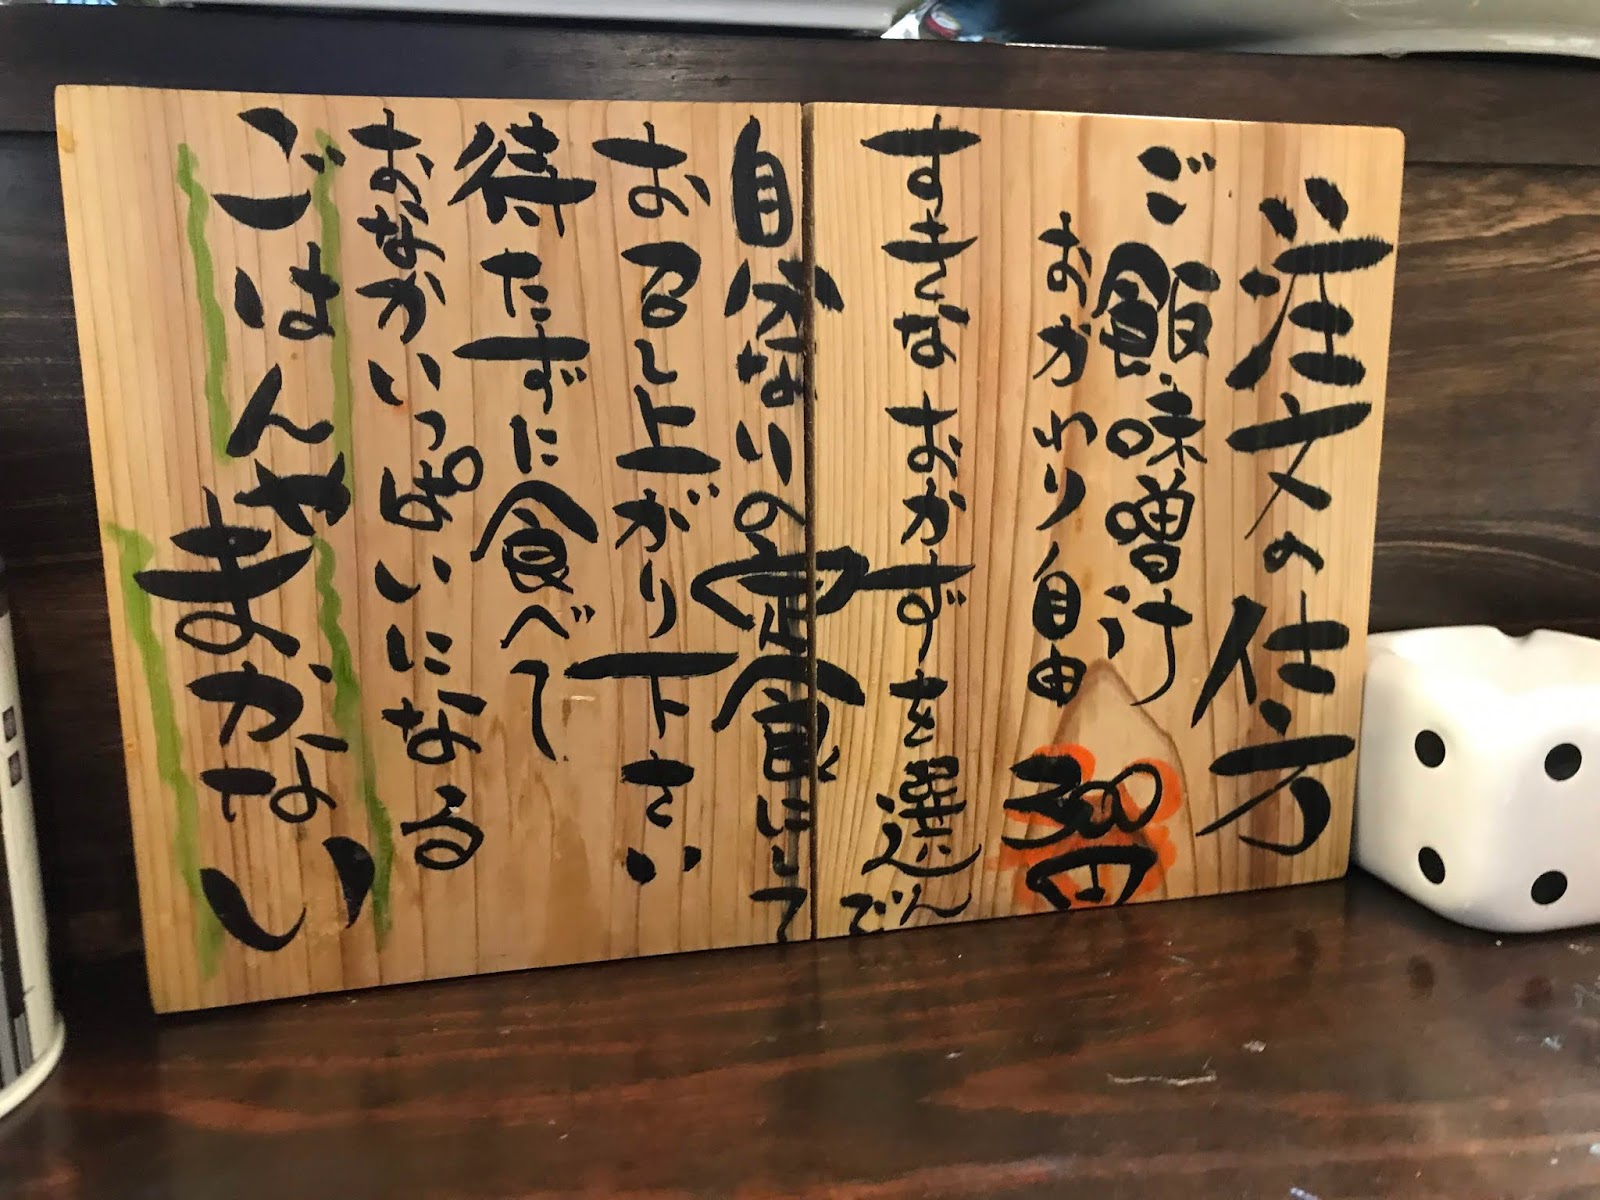 注文の仕方
ご飯味噌汁
おかわり自由
300円
すきなおかずを選んで
自分なりの定食にして
お召し上がり下さい
待たずに食べて
おなかいっぱいになる
ごはんや
まかない